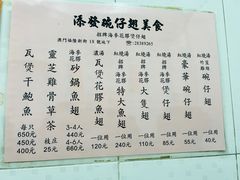 添發碗仔翅美食
招牌海參花膠煲仔翅
澳門福隆新街18號地下 ☎:28389265
瓦煲干鮑魚
每只
650元
450元
靈芝雞骨草茶
枝庄
20元
海參花膠
砂鍋魚翅
3-4人
440元
660元
濃湯
瓦煲花膠魚翅
一位用
400元
紅燒湯
海參花膠
特大魚翅
一位用
240元
紅燒湯
大隻翅
一位用
110元
紅燒湯
豪華碗仔翅
一位用
85元
碗仔翅
一位用
55元
40元